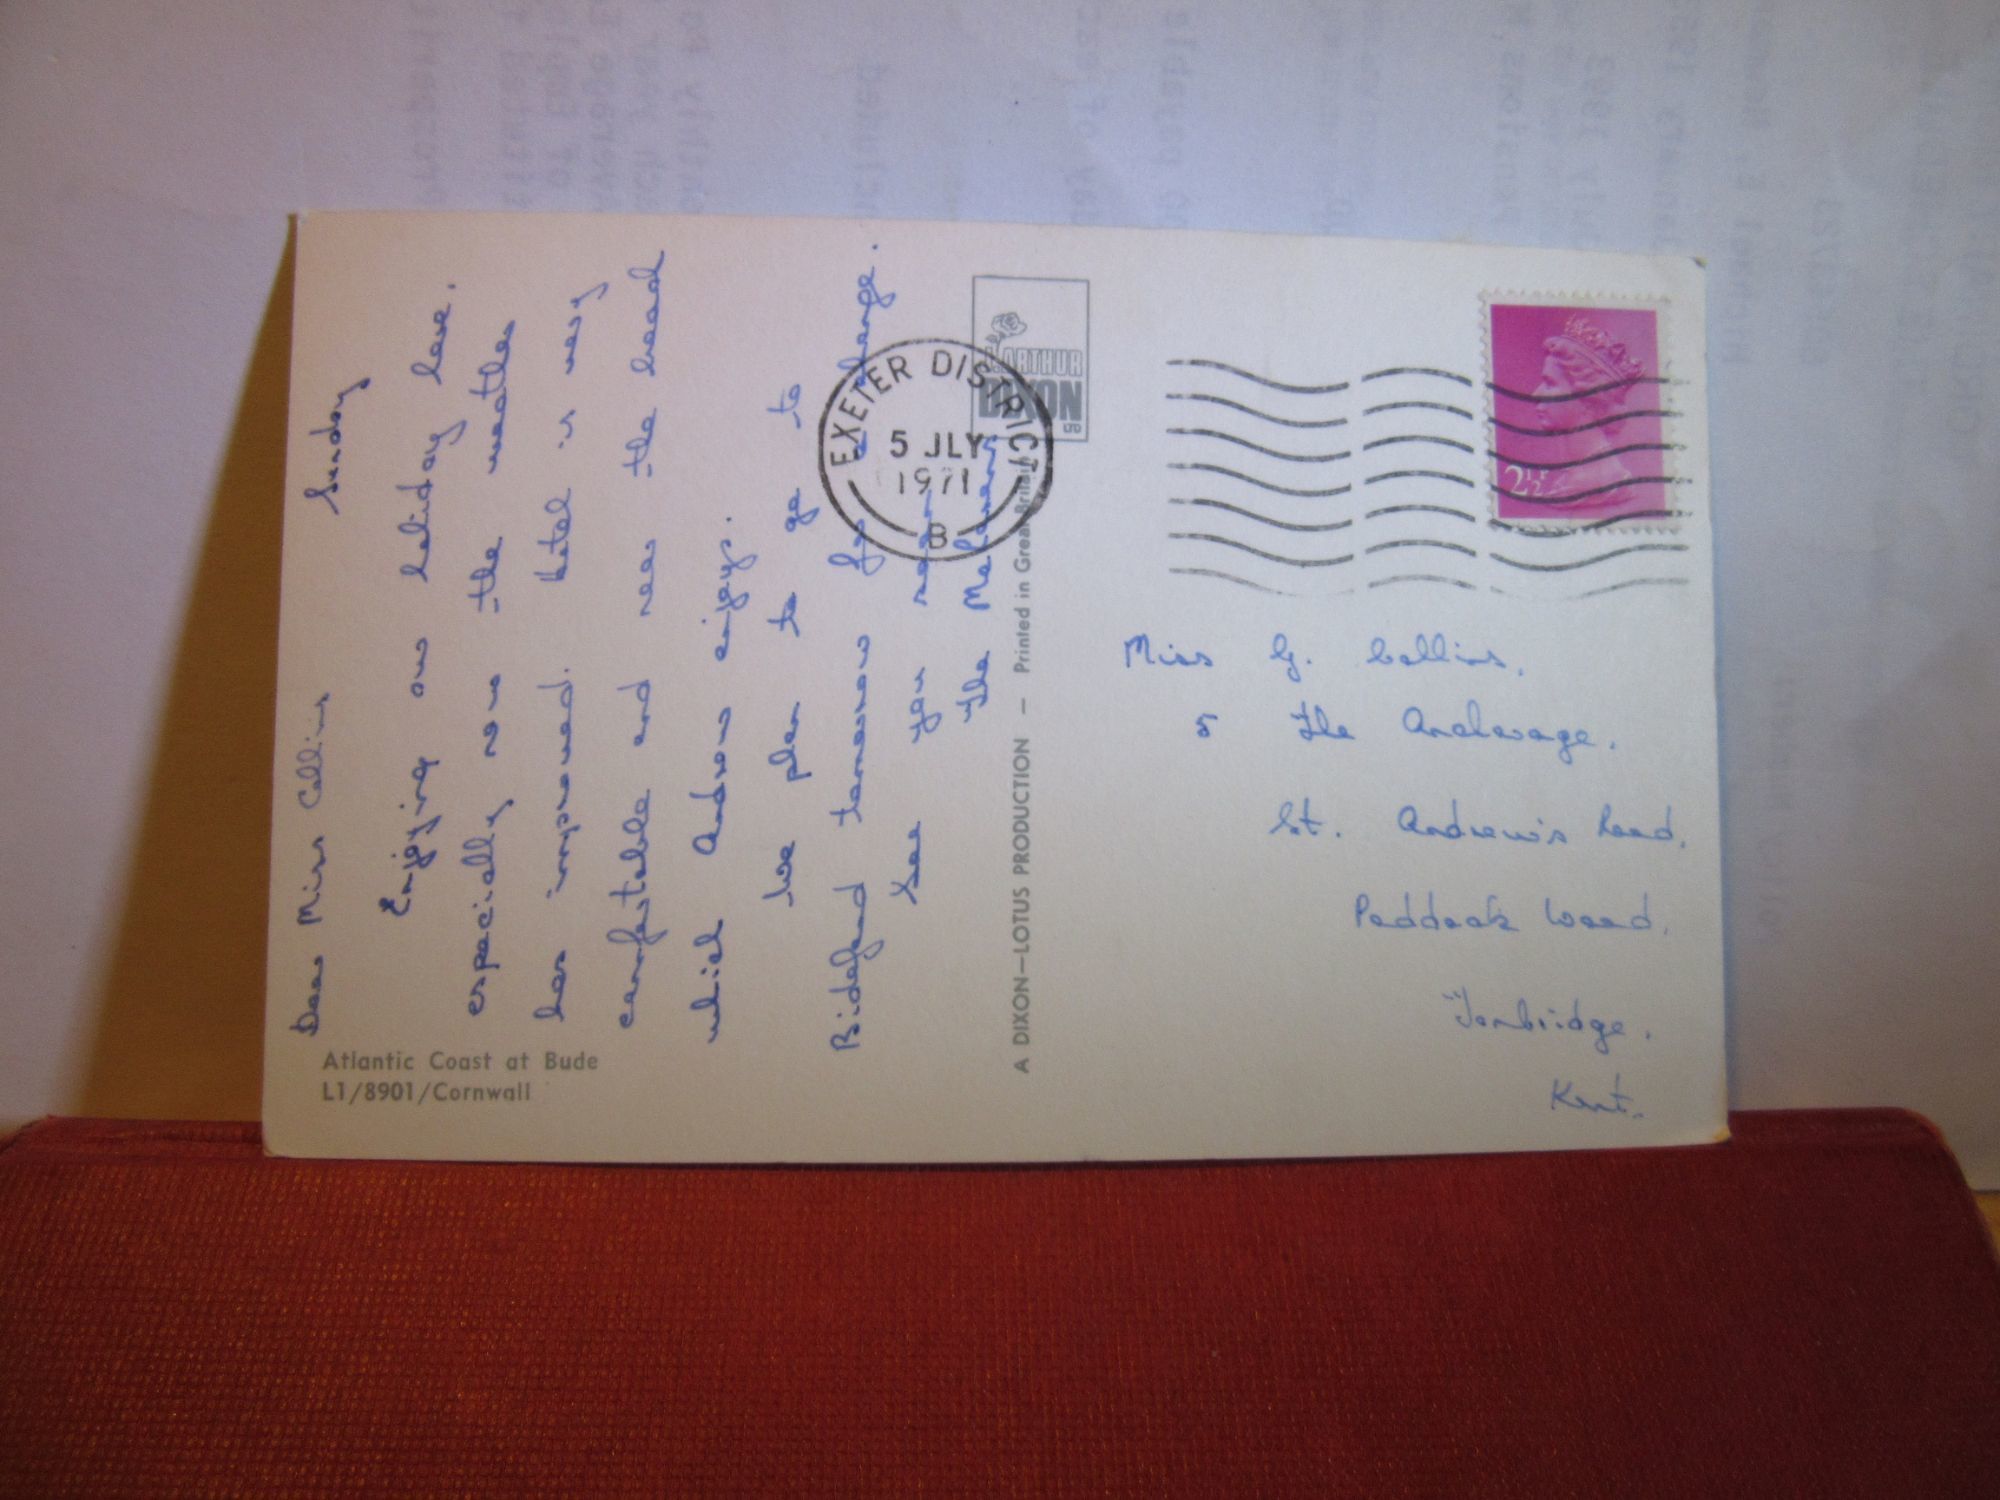 Dear Miss Collins
Sunday
Enjoying our holiday here,
especially now the weather
has improved. Hotel is very
comfortable and near the beach
which Andrew enjoys.
We plan to go to
Bideford tomorrow for a change.
See you soon
The
Atlantic Coast at Bude
L1/8901/Cornwall
A DIXON—LOTUS PRODUCTION — Printed in Great Britain
J. ARTHUR
DIXON
LTD
EXETER DISTRICT
5 JLY
1971
B
2½P
Miss G. Collins,
5 The
St. Andrew's Road,
Paddock Wood,
Tonbridge,
Kent.